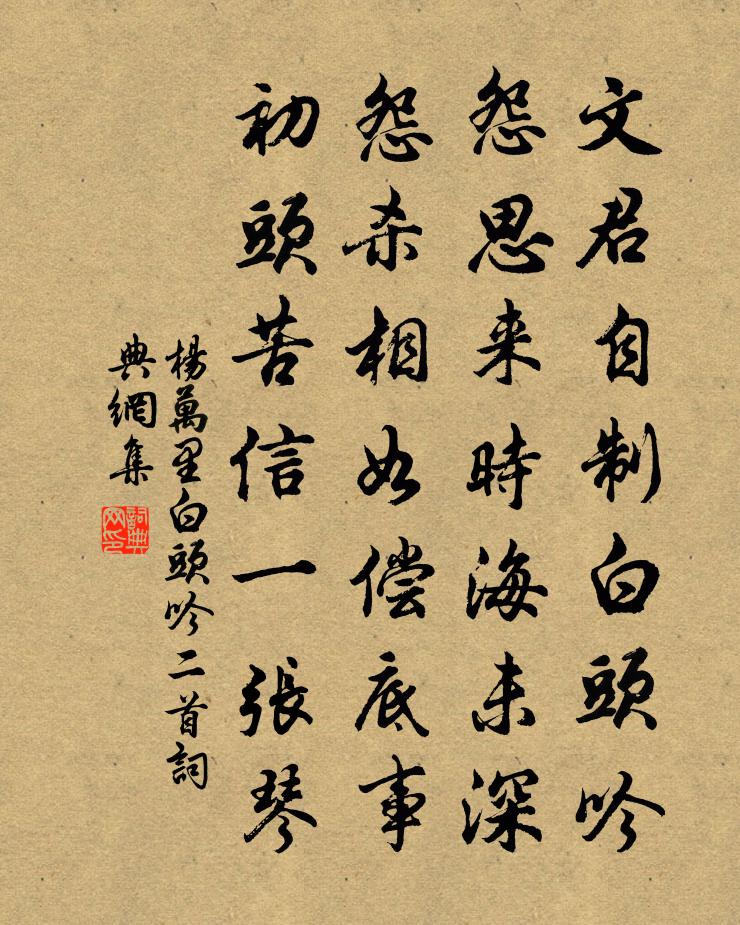 文君自制白頭吟
怨思来時海未深
怨杀相如偿底事
初頭苦信一張琴
楊萬里白頭吟二首詞
典網集
詞典
网印